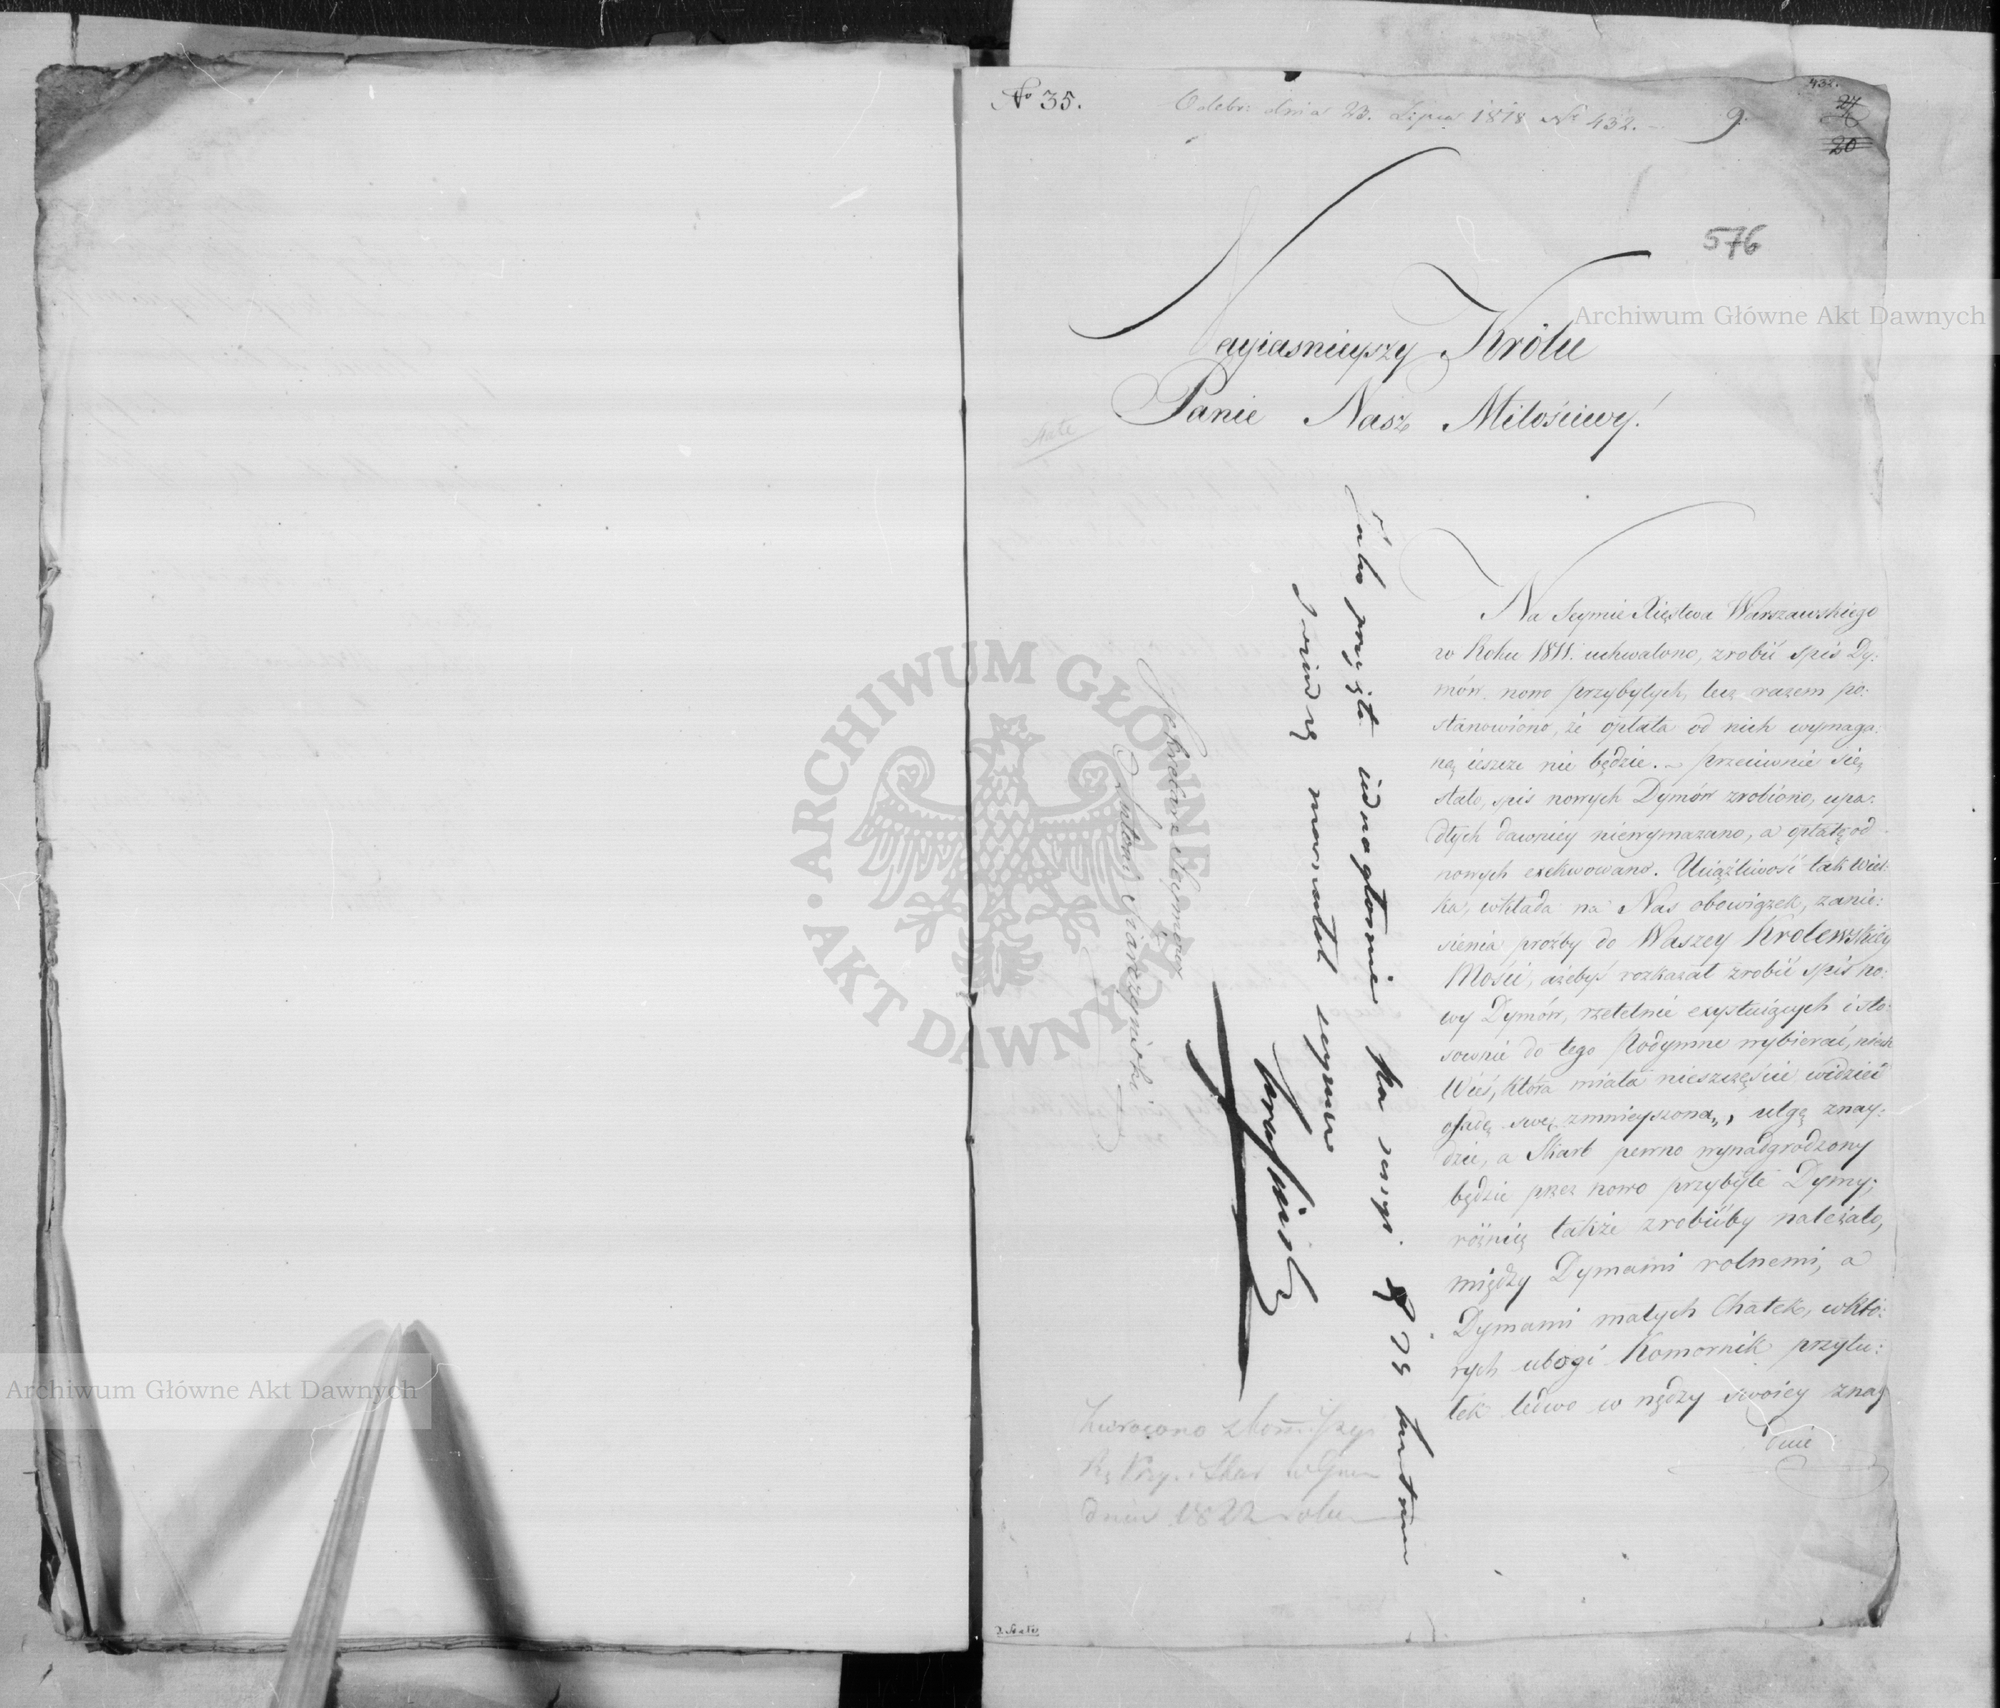 No 35.
Odebr: dnia 23. Lipca 1818 No 432.
9.
432.
24
20
576
Nayiasnieyszy Królu
Panie Nasz Miłościwy!
Na Seymie Xięstwa Warszawskiego
w Roku 1811. uchwalono, zrobić spis Dy:
mów nowo przybyłych, lecz razem po:
stanowiono, że opłata od nich wymaga:
ną ieszcze nie będzie. – przeciwnie się
stało, spis nowych Dymów zrobiono, upa:
dłych dawniey niewymazano, a opłatę od
nowych exekwowano. Uciążliwość tak wiel:
ka, wkłada na Nas obowiązek, zanie:
sienia proźby do Waszey Krolewskiey
Mości, ażebyś rozkazał zrobić spis no:
wy Dymów, rzetelnie exystuiących i sto:
sownie do tego Podymne wybierać, niech
Wieś, która miała nieszczęście widzieć
osadę swą zmnieyszoną, ulgę znay:
dzie, a Skarb pewno wynadgrodzony
będzie przez nowo przybyłe Dymy;
różnicę także zrobićby należało,
między Dymami rolnemi, a
Dymami małych Chatek, w któ:
rych ubogi Komornik przytu:
łek ledwo w nędzy swoiey znay
dzie
Jako przyięte iednogłośnie na sessyi
marszałek seymu
Krasiński
Sekretarz Seymowy
Antoni Siarczyński
Zwrócono z Kommissyi
dniu 1822 roku
Archiwum Główne Akt Dawnych
Archiwum Główne Akt Dawnych
ARCHIWUM GŁÓWNE • AKT DAWNYCH •